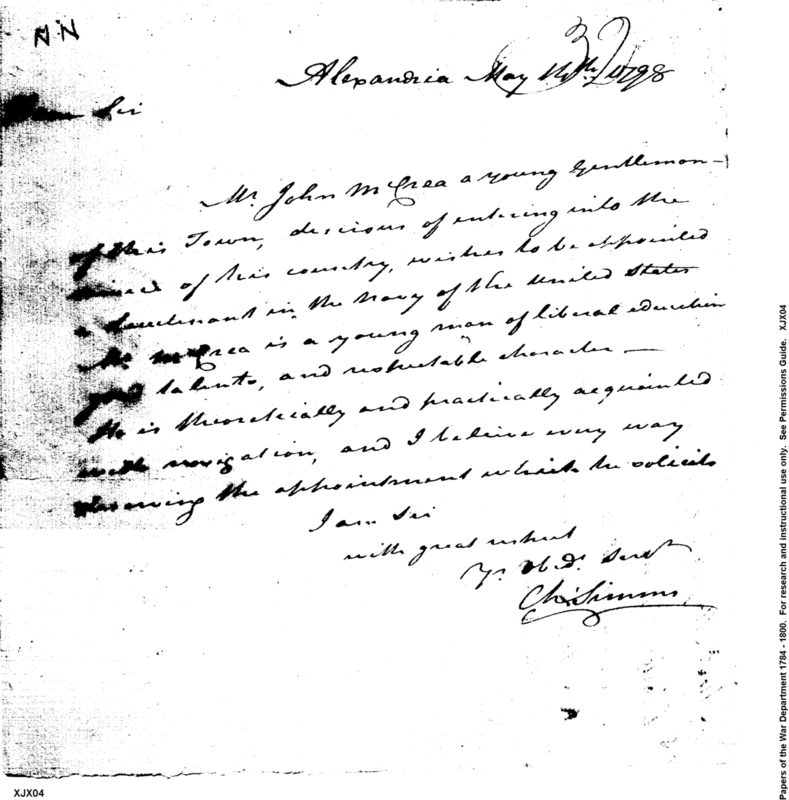 NN
Alexandria May 14th, 1798
Dear Sir
Mr. John McCrea a young Gentleman
of this Town, desirous of entering into the
service of his country, wishes to be appointed
a Lieutenant in the Navy of the United States
Mr. McCrea is a young man of liberal education
good talents, and respectable character —
He is theoretically and practically acquainted
with navigation, and I believe every way
deserving the appointment which he solicits
I am Sir
with great respect
Yr. Obedt. Servt
Ch. Simms
XJX04
Papers of the War Department 1784 - 1800. For research and instructional use only. See Permissions Guide. XJX04